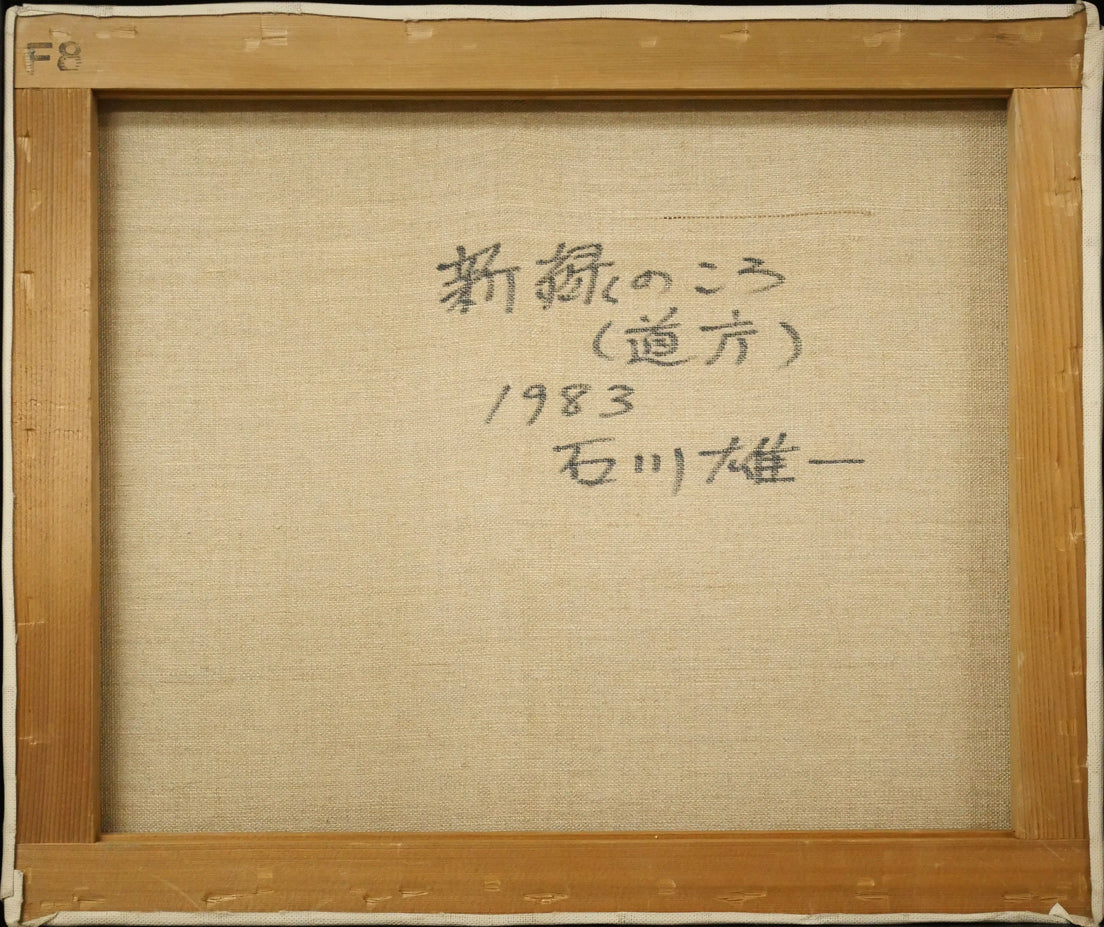 F8
新緑のころ
(道方)
1983
石川雄一